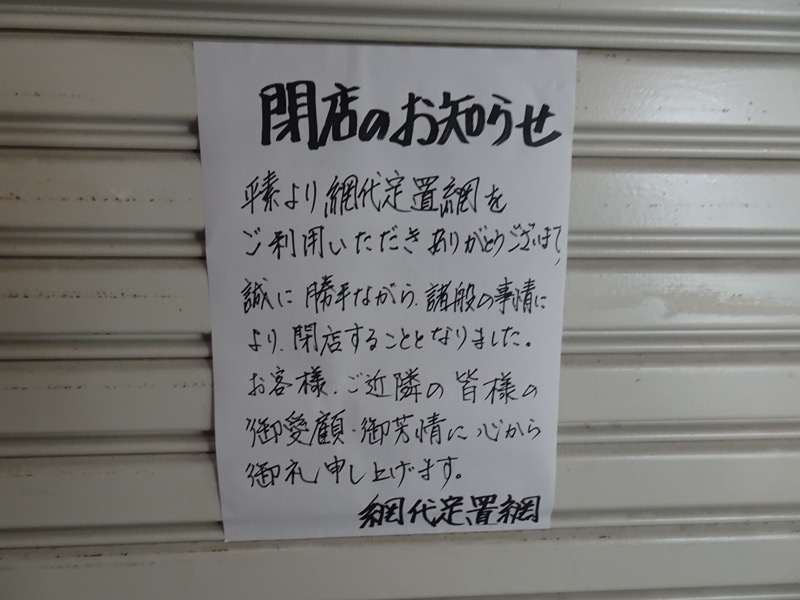 閉店のお知らせ
平素より網代定置網を
ご利用いただきありがとうございます、
誠に勝手ながら、諸般の事情に
より、閉店することとなりました。
お客様、ご近隣の皆様の
御愛顧・御芳情に心から
御礼申し上げます。
網代定置網